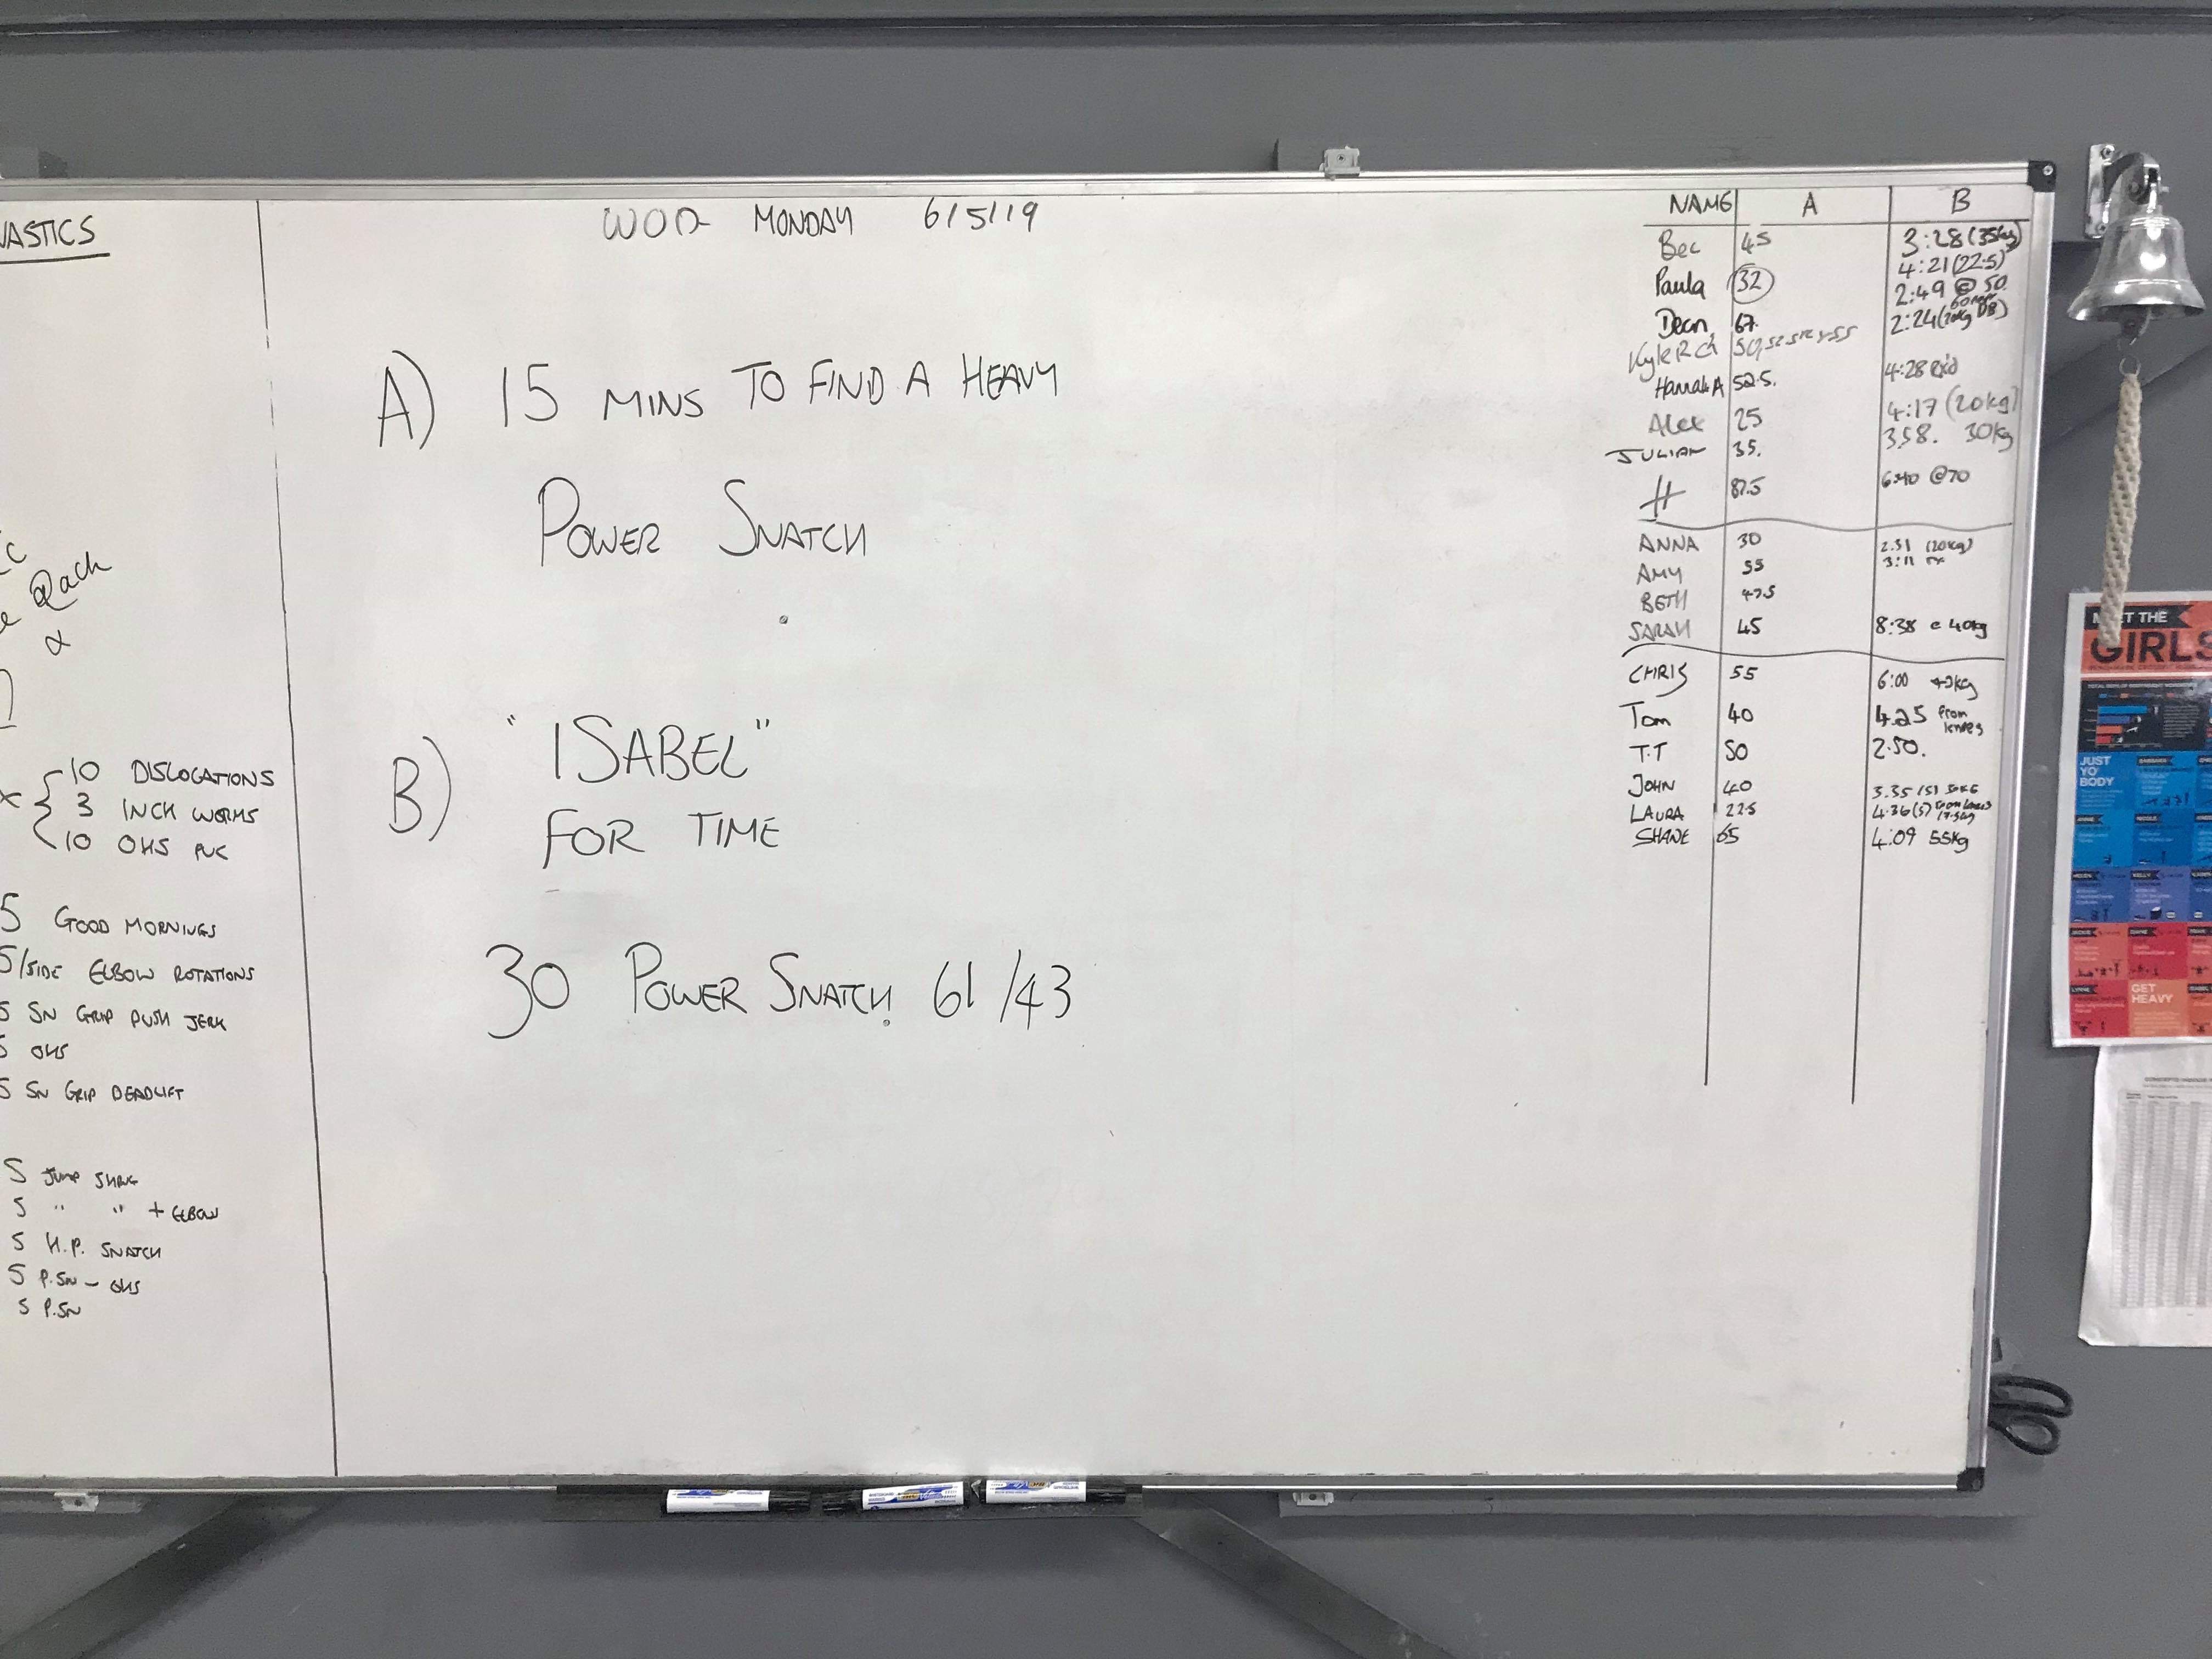 NASTICS
Rach
&
10 DISLOCATIONS
3 INCH WORMS
10 OHS PVC
5 GOOD MORNINGS
5/SIDE ELBOW ROTATIONS
5 SN GRIP PUSH JERK
5 OHS
5 SN GRIP DEADLIFT
5 JUMP SHRUG
5 " " + ELBOW
5 H.P. SNATCH
5 P.SN - OHS
5 P.SN
WOD MONDAY 6/5/19
A) 15 MINS TO FIND A HEAVY
POWER SNATCH
B) "ISABEL"
FOR TIME
30 POWER SNATCH 61/43
NAME A B
Bec 45 3:28 (35kg)
Paula 32 4:21 (22.5)
Dean 67. 2:49 @ 50
Kyle R 2:24 (20kg DB)
Hannah A 52.5. 4:28 RX'd
Alex 25 4:17 (20kg)
JULIAN 35. 3.58. 30kg
H 87.5 6:40 @70
ANNA 30 2.51 (20kg)
AMY 55 3:11 rx
BETH 47.5
SARAH 45 8:38 @ 40kg
CHRIS 55 6:00 43kg
Tom 40 4.25 from knees
T.T 50 2.50.
JOHN 40 3.35 (5) 30KG
LAURA 22.5 4.36 (5) from knees 17.5kg
SHANE 65 4:09 55kg
MEET THE
GIRLS
JUST
YO'
BODY
GET
HEAVY